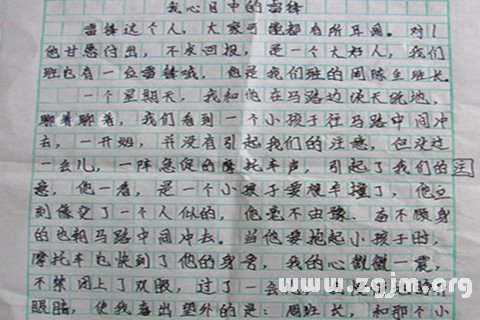 我心目中的雷锋
雷锋这个人，大家可能都有所耳闻。对！
他甘愿付出，不求回报，是一个大好人，我们
班也有一位雷锋哦，他是我们班的周陈 班长
一个星期天，我和他在马路边谈天说地，
聊着聊着，我们看到一个小孩子往马路中间冲
去，一开始，并没有引起我们的注意，但没过
一会儿，一阵急促的摩托车声，引起了我们的
意，他一看，是一个小孩子要被车撞了，他立
刻像变了一个人似的，他毫不由豫、奋不顾身
的也朝马路中间冲去。当他要抱起小孩子时，
摩托车也快到了他的身旁，我的心微微一震，
不禁闭上了双眼，过了一会
眼睛，使我喜出望外的是：周班长，和那个小
www.zgjm.org